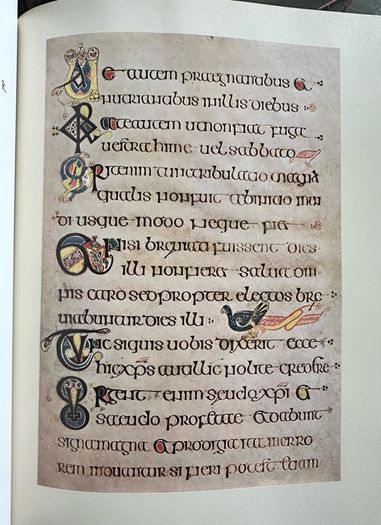 Uae autem praegnatibus et
nutriantibus in illis diebus
Orate autem ut non fiat fuga
uestra hime uel sabbato
Erit enim tunc tribulatio magna
qualis non fuit ab initio mun
di usque modo neque fiet
Et nisi breuiati fuissent dies
illi non fieret salua om
nis caro sed propter electos bre
uiabuntur dies illi
Tunc si quis uobis dixerit ecce
hic xps aut illic nolite credere
Surgent enim seudo xpi et
seudo profetae et dabunt
signa magna et prodigia ita in erro
rem si fieri potest etiam